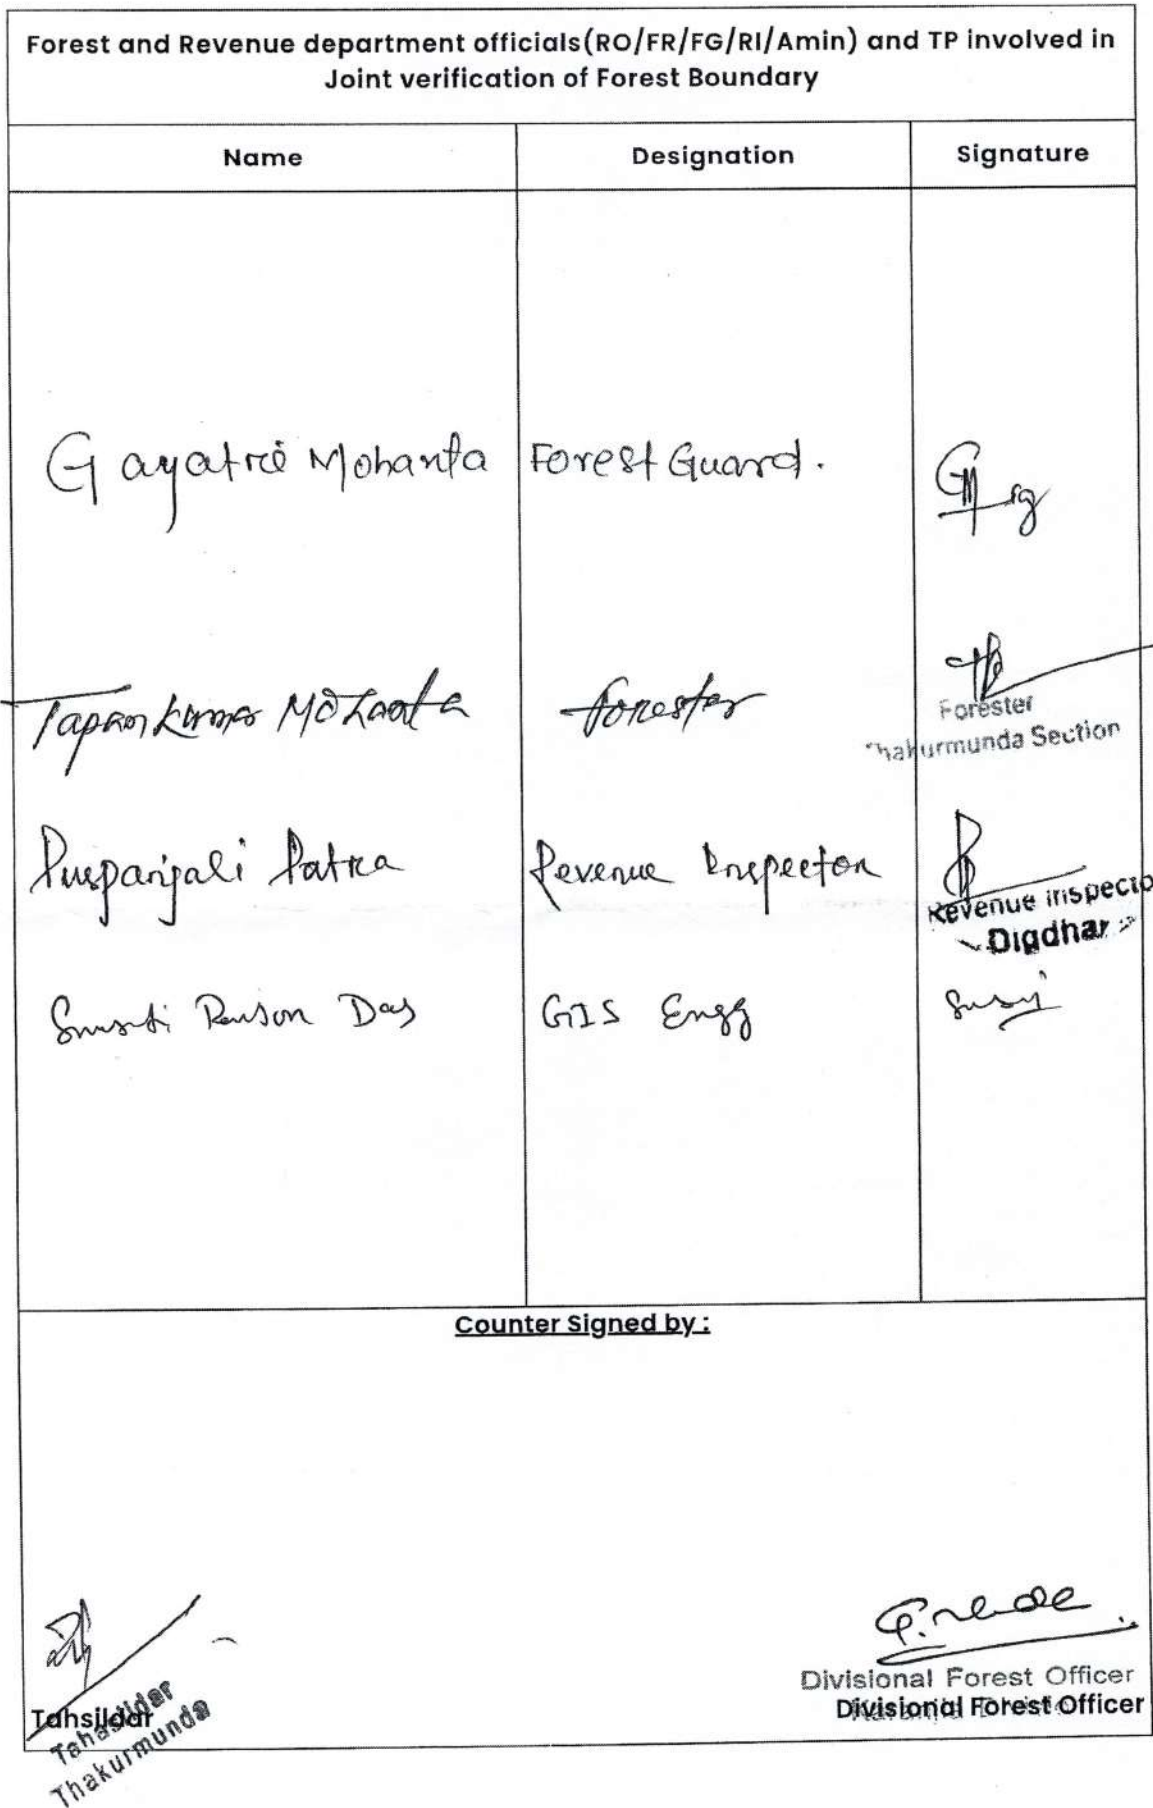 Forest and Revenue department officials(RO/FR/FG/RI/Amin) and TP involved in
Joint verification of Forest Boundary
Name Designation Signature
Gayatri Mohanta Forest Guard.
Tapan Kumar Mohanta forester
Forester
Thakurmunda Section
Puspanjali Patra Revenue Inspector
Revenue Inspecto
Digdhar
Das GIS Engg
Counter Signed by :
Divisional Forest Officer
Tahsildar Divisional Forest Officer
Tahasildar
Thakurmunda